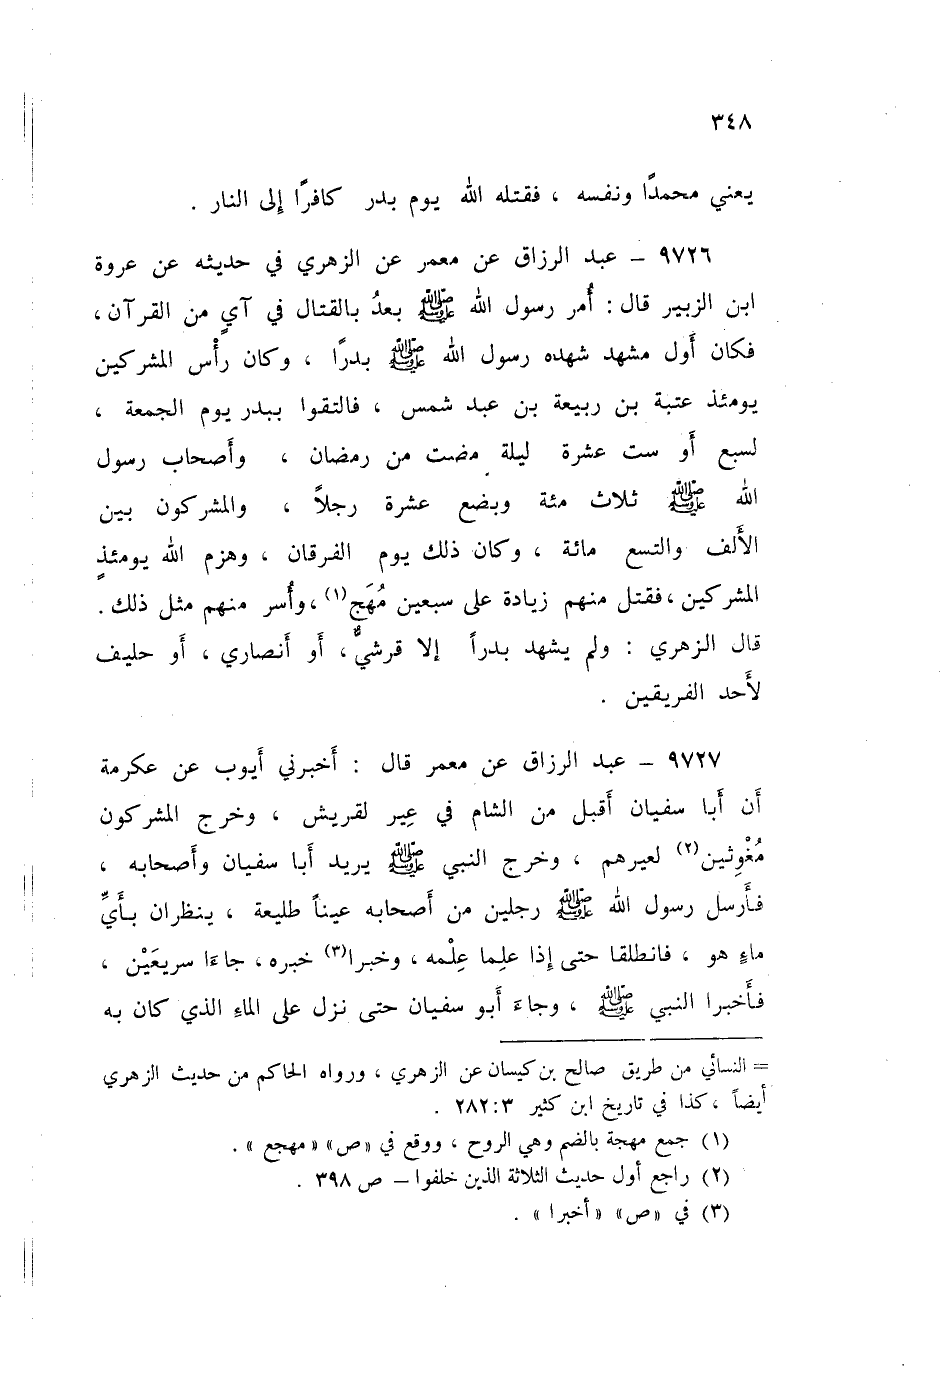 ٣٤٨
يعني محمدًا ونفسه ، فقتله الله يوم بدر كافرًا إلى النار .
٩٧٢٦ – عبد الرزاق عن معمر عن الزهري في حديثه عن عروة
ابن الزبير قال : أُمر رسول الله ﷺ بعدُ بالقتال في آيٍ من القرآن ،
فكان أَول مشهد شهده رسول الله ﷺ بدرًا ، وكان رأْس المشركين
يومئذ عتبة بن ربيعة بن عبد شمس ، فالتقوا ببدر يوم الجمعة ،
لسبع أَو ست عشرة ليلة مضت من رمضان ، وأَصحاب رسول
الله ﷺ ثلاث مئة وبضع عشرة رجلاً ، والمشركون بين
الأَلف والتسع مائة ، وكان ذلك يوم الفرقان ، وهزم الله يومئذٍ
المشركين ، فقتل منهم زيادة على سبعين مُهَج(١) ، وأُسر منهم مثل ذلك .
قال الزهري : ولم يشهد بدراً إلا قرشيٌّ ، أَو أَنصاري ، أَو حليف
لأَحد الفريقين .
٩٧٢٧ – عبد الرزاق عن معمر قال : أَخبرني أَيوب عن عكرمة
أَن أَبا سفيان أَقبل من الشام في عِير لقريش ، وخرج المشركون
مُغْوِثين(٢) لعيرهم ، وخرج النبي ﷺ يريد أَبا سفيان وأَصحابه ،
فأَرسل رسول الله ﷺ رجلين من أَصحابه عيناً طليعة ، ينظران بأَيِّ
ماءٍ هو ، فانطلقا حتى إِذا علِما عِلْمه ، وخبرا(٣) خبره ، جاءَا سريعَيْن ،
فأَخبرا النبي ﷺ ، وجاءَ أَبو سفيان حتى نزل على الماءِ الذي كان به
= النسائي من طريق صالح بن كيسان عن الزهري ، ورواه الحاكم من حديث الزهري
أيضاً ، كذا في تاريخ ابن كثير ٣:٢٨٢ .
(١) جمع مهجة بالضم وهي الروح ، ووقع في «ص» «مهجع» .
(٢) راجع أول حديث الثلاثة الذين خلفوا – ص ٣٩٨ .
(٣) في «ص» «أخبرا» .